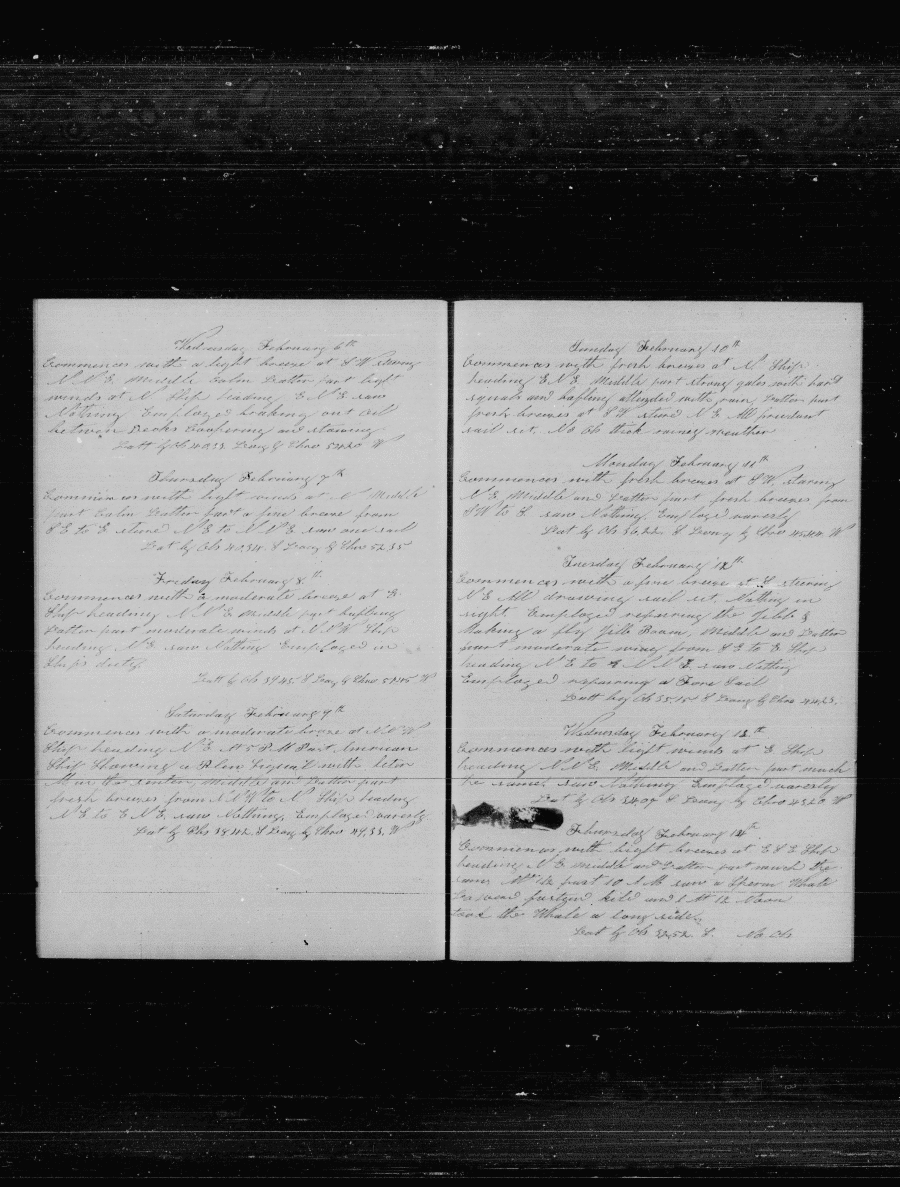 Wednesday February 6th
Commences with a light breeze at S W Stearing
N N E Middle Calm Latter part light
winds at N Ship heading E N E saw
Nothing Employed braking out Oil
between Decks Coopering and
Latt by Ob 40,33. Long by Chro W
Thursday February 7th
Commences with light winds at N Middle
part Calm Latter part a fine breeze from
S E to E N E to N N E saw one sail
Lat by Obs S Long by Chro 52 35
Friday February 8th
Commences with a moderate breeze at E
Ship heading N N E Middle part baffling
Latter part moderate winds at N N W Ship
heading N E saw Nothing Employed in
Ships duty
Latt by Ob 39 45 S Long by Chro W
Saturday February 9th
Commences with a moderate breze at N N W
Ship heading N E At 5 P M Past American
Ship Shawing a Blew Signal with leter
M in the senter, Middle and Latter part
fresh brezes from N N W to N Ship heading
N E to E N E, saw Nothing, Employed varesly
Lat by Obs 39 42 S Long by Chro 49,33, W
Sunday February 10th
Commences with fresh brezes at N Ship
heading E N E Middle part strong gales with hard
squals and with rain, Latter part
fresh brezes at S W N E All
sail set. No Ob thick weather
Monday February 11th
Commences with fresh brezes at S W Staring
N E, Middle and Latter part fresh brezes from
S W to S saw Nothing, Employd varesly
Lat by Obs 36,22 S Long by Chro 45,44 W
Tuesday February 12th
Commences with a fine breeze at S steering
N E All drawing sail set Nothing in
sight Employed repairing the Jibb &
Making a fly Jibb Boom, Middle and Latter
part moderate wing from S E to E Ship
heading N E to N N E saw Nothing
Employed repairing a Fore Sail
Latt by Ob 35,15 S Long by Chro 44 23,
Wednesday February 13th
Commences with light winds at E Ship
heading N N E Middle and Latter part much
the same saw Nothing Employd varesly
Lat by Obs 34 07 S Long by Chro W
Thursday February 14th
Commences with light breezes at E S E Ship
heading N E Middle and Latter part much the
same At past 10 A M saw a Sperm Whale
Lowerd kild and At 12 Noon
took the Whale a long side.
Lat by Ob 32,52 S. No Ob